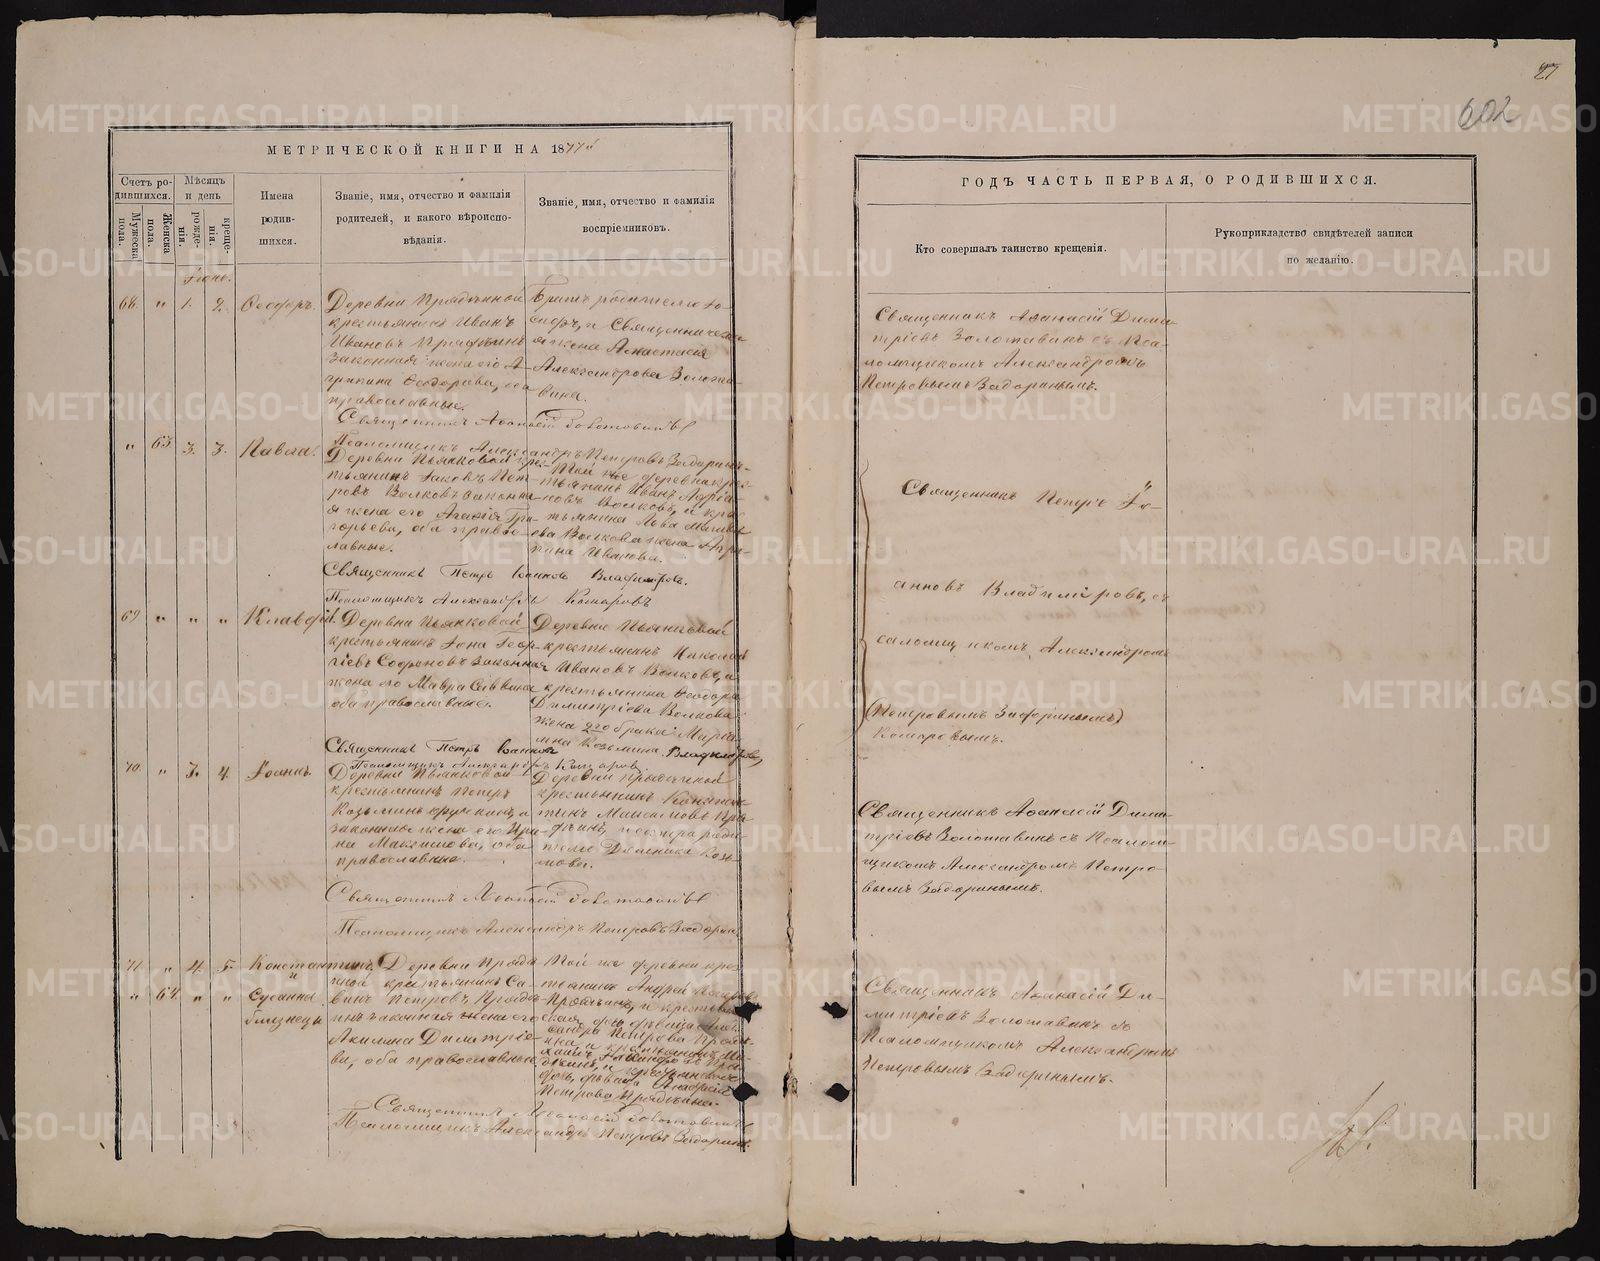 27
602
МЕТРИЧЕСКОЙ КНИГИ НА 1877й
Счетъ ро-
дившихся.
Мужеска
пола.
Женска
пола.
Мѣсяцъ
и день
рожде-
нія.
креще-
нія.
Имена
родив-
шихся.
Званіе, имя, отчество и фамилія
родителей, и какого вѣроиспо-
вѣданія.
Званіе, имя, отчество и фамилія
воспріемниковъ.
Іюнь.
68. „ 1. 2. Ѳеодоръ.
Деревни Прядеиной
крестьянинъ Иванъ
Ивановъ Прядеинъ
законная жена его А-
грипина Ѳеодорова, оба
православные.
Братъ родителю
и Священническая
жена Анастасія
Александрова Золота-
вина.
Священникъ Аѳанасій Золотавинъ
Псаломщикъ Александръ Петровъ Задоринъ
„ 63 3. 3. Павла.
Деревни Пьянковой крес-
тьянинъ Іаковъ Пет-
ровъ Волковъ законна-
я жена его Агафія Гри-
горьева, оба правос-
лавные.
Той же деревни крес-
тьянинъ Иванъ Адріа-
новъ Волковъ, и крес-
тьянина
Волкова жена Агри-
пина Иванова.
Священникъ Петръ Іоанновъ Владиміровъ.
Псаломщикъ Александръ Комаровъ
69 „ „ „ Клавдій.
Деревни Пьянковой
крестьянинъ Іона Геор-
гіевъ Софоновъ законная
жена его Мавра Саввина
оба православные.
Деревни Пьянковой
крестьянинъ Николай
Ивановъ Волковъ, и
крестьянина Ѳеодора
Димитріева Волкова
жена 2го брака Марі-
мна Козьмина.
Священникъ Петръ Іоанновъ Владиміровъ,
Псаломщикъ Александръ Комаровъ
70. „ 3. 4. Іоаннъ.
Деревни Пьянковой
крестьянинъ Петръ
Козьминъ
законная жена его Ири-
на Максимова, оба
православные.
Деревни Прядеиной
крестьянинъ Констан-
тинъ Максимовъ Пря-
деинъ, и сестра роди-
телю Козь-
мова.
Священникъ Аѳанасій Золотавинъ
Псаломщикъ Александръ Петровъ Задоринъ
71. „ 4. 5. Константинъ
и
„ 64. „ „ Сусанна
близнецы
Деревни Пряде-
иной крестьянинъ Са-
винъ Петровъ Пряде-
инъ законная жена его
Акилина Димитріе-
ва, оба православные.
Той же деревни крес-
тьянинъ Андрей Петровъ
Прядеинъ, и крестьян-
ская дочь дѣвица Алек-
сандра Петрова Пряде-
ина и крестьянинъ
Петрова Прядеина.
Священникъ Аѳанасій Золотавинъ
Псаломщикъ Александръ Петровъ Задоринъ.
ГОДЪ ЧАСТЬ ПЕРВАЯ, О РОДИВШИХСЯ.
Кто совершалъ таинство крещенія.
Рукоприкладство свидѣтелей записи
по желанію.
Священникъ Аѳанасій Дими-
тріевъ Золотавинъ съ Пса-
ломщикомъ Александромъ
Петровымъ Задоринымъ.
Священникъ Петръ Іо-
анновъ Владиміровъ, съ
саломщикомъ Александромъ
(Петровымъ Задоринымъ)
Комаровымъ.
Священникъ Аѳанасій Дими-
тріевъ Золотавинъ съ Псалом-
щикомъ Александромъ Петро-
вымъ Задоринымъ.
Священникъ Аѳанасій Ди-
митріевъ Золотавинъ съ
Псаломщикомъ Александромъ
Петровымъ Задоринымъ.
METRIKI.GASO-URAL.RU